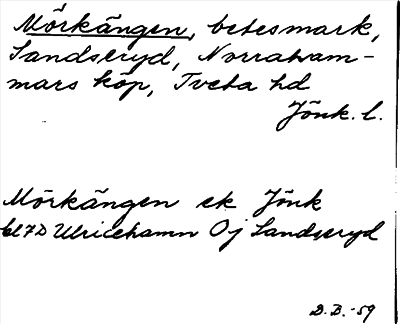 Mörkängen, betesmark,
Sandseryd, Norraham-
mars köp, Tveta hd
Jönk. l.
Mörkängen ek Jönk
bl 7D Ulricehamn Öj Sandseryd
D.B. -59